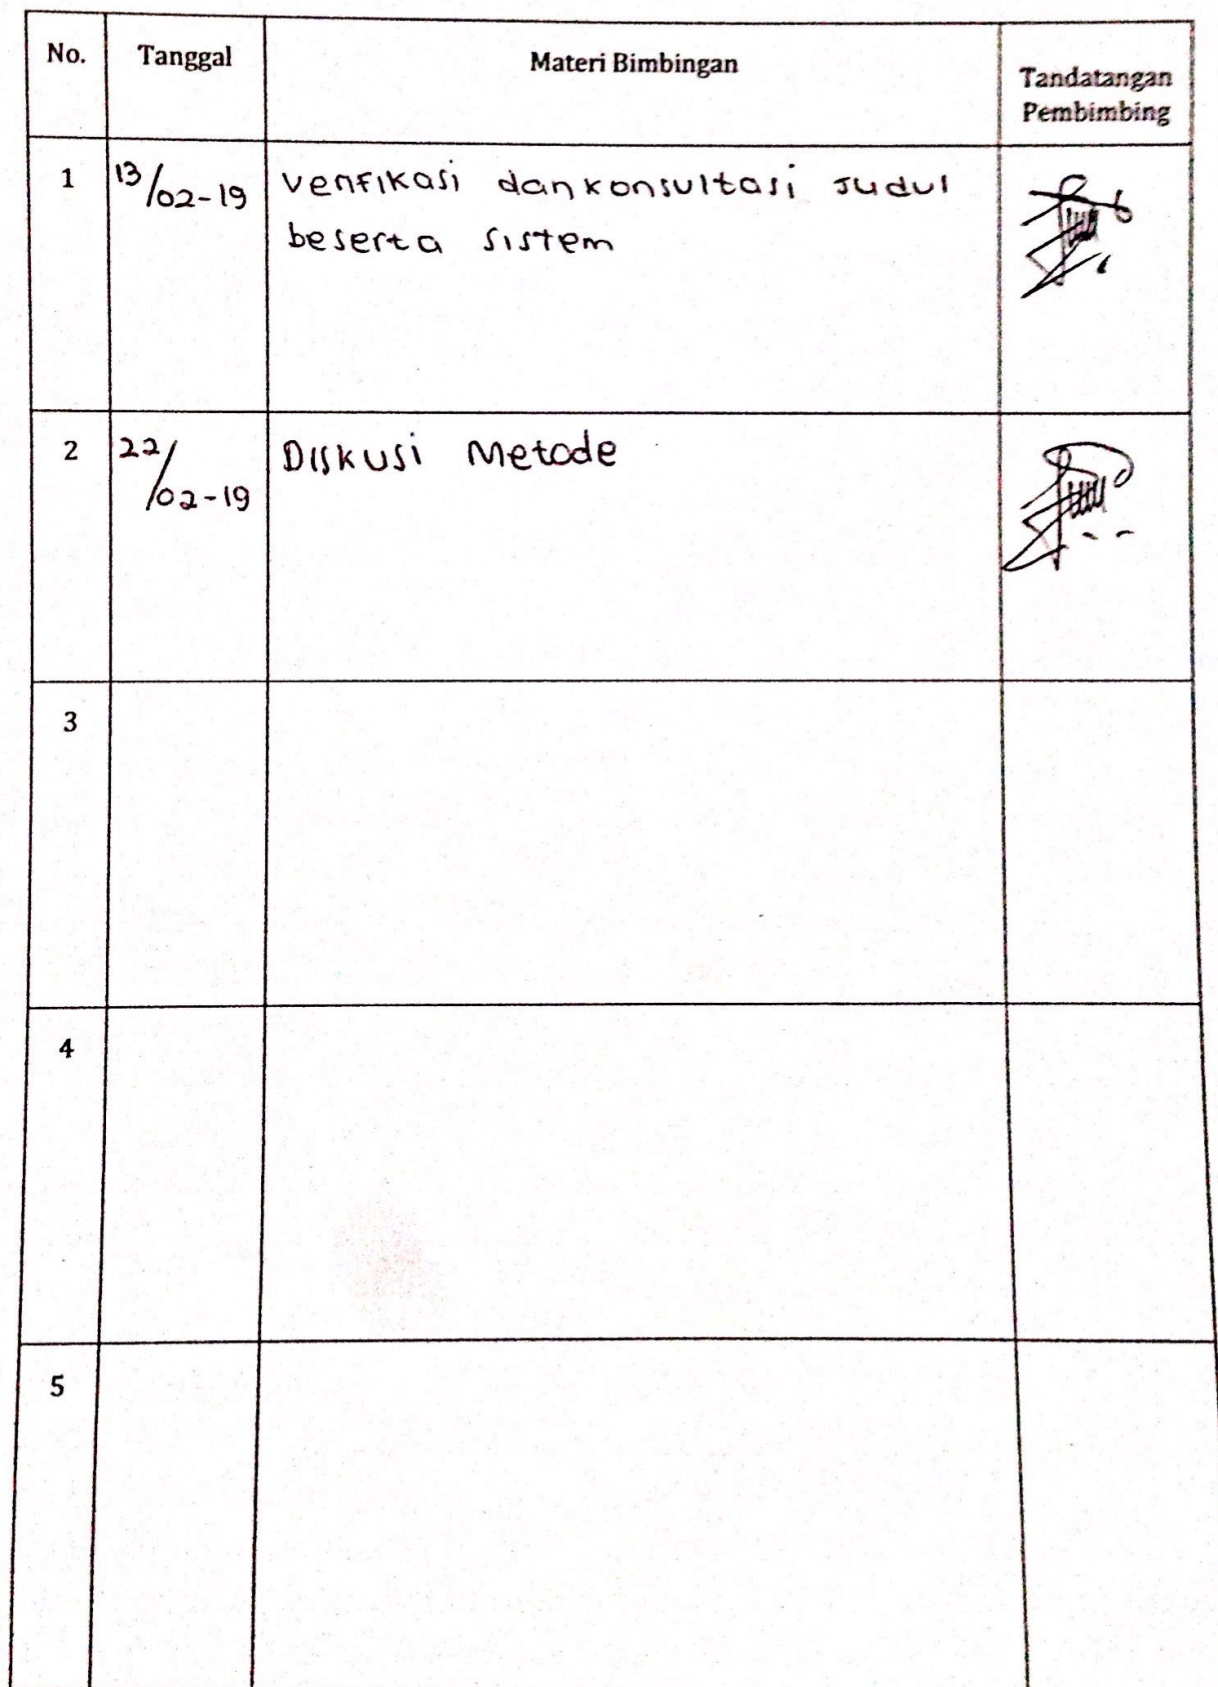 No. Tanggal Materi Bimbingan Tandatangan
Pembimbing
1 13/02-19 Verifikasi dan konsultasi Judul
beserta sistem
2 22/02-19 Diskusi Metode
3
4
5